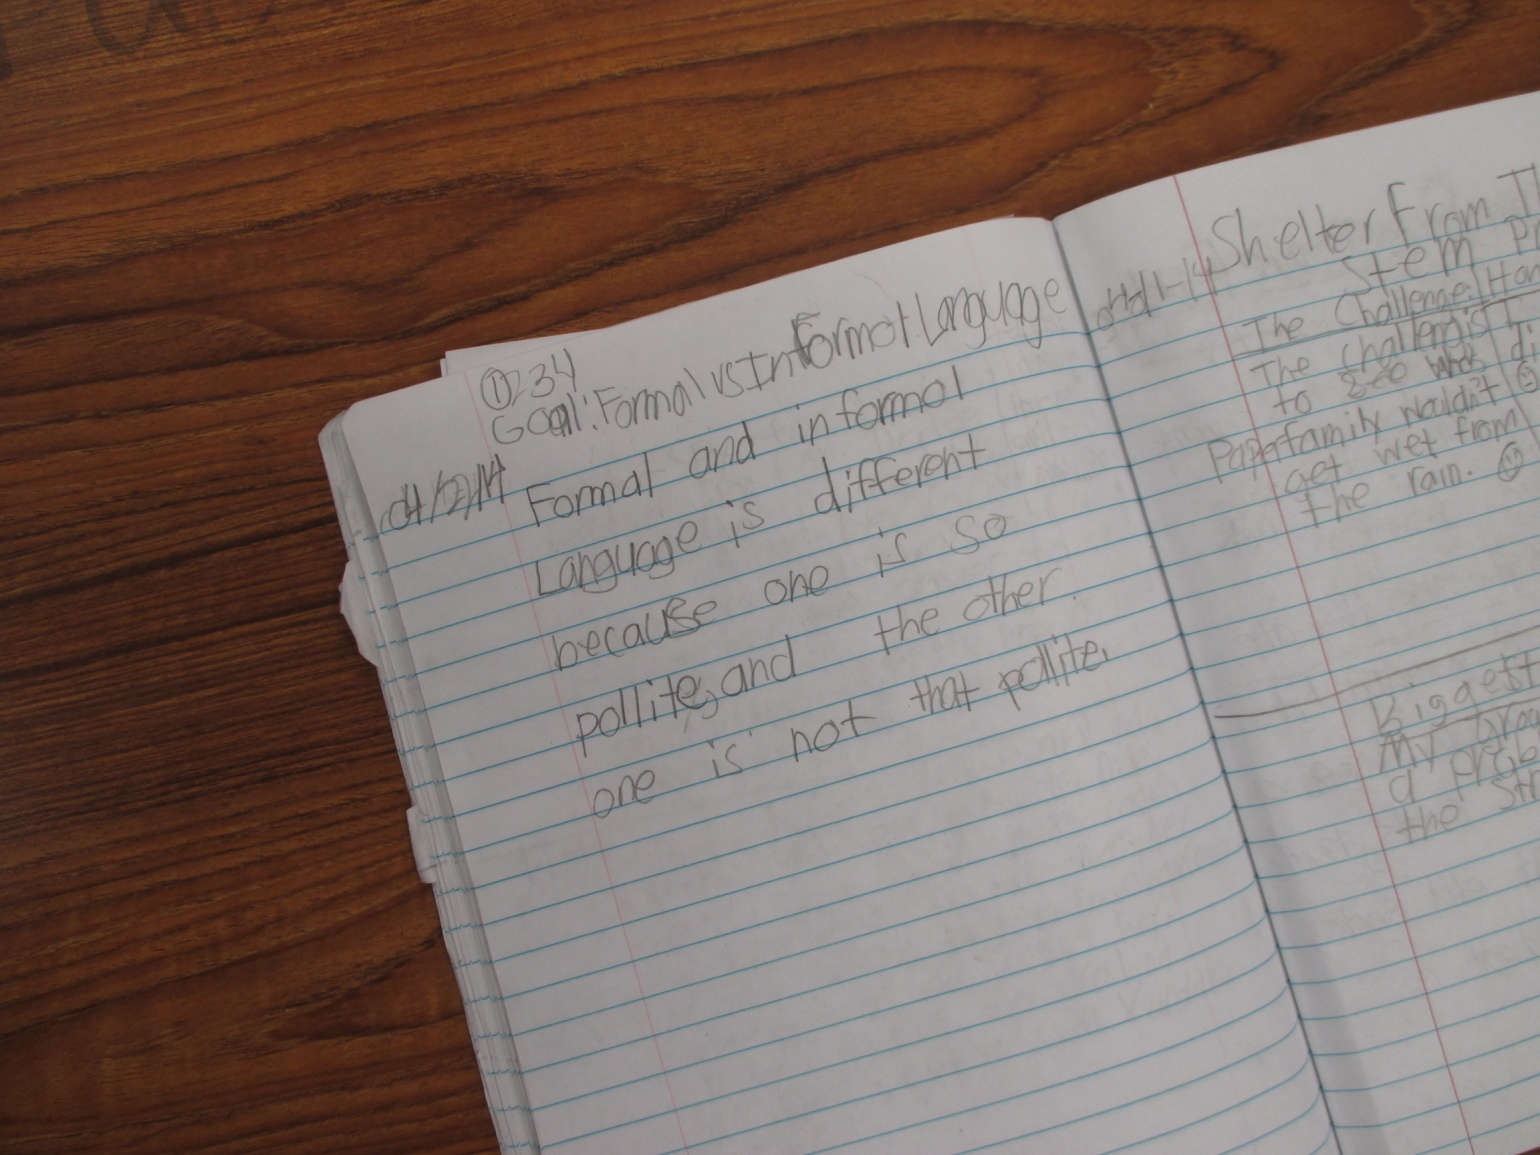 ① 2 3 4
Goal: Formal vs Informal Language
04/2/14 Formal and informal
Language is different
because one is so
pollite, and the other.
one is not that pollite.
Shelter From
Stem
The Challenge:
The challeng is
to see
family wouldn't
get wet from
the rain.
Biggest
My
a
the